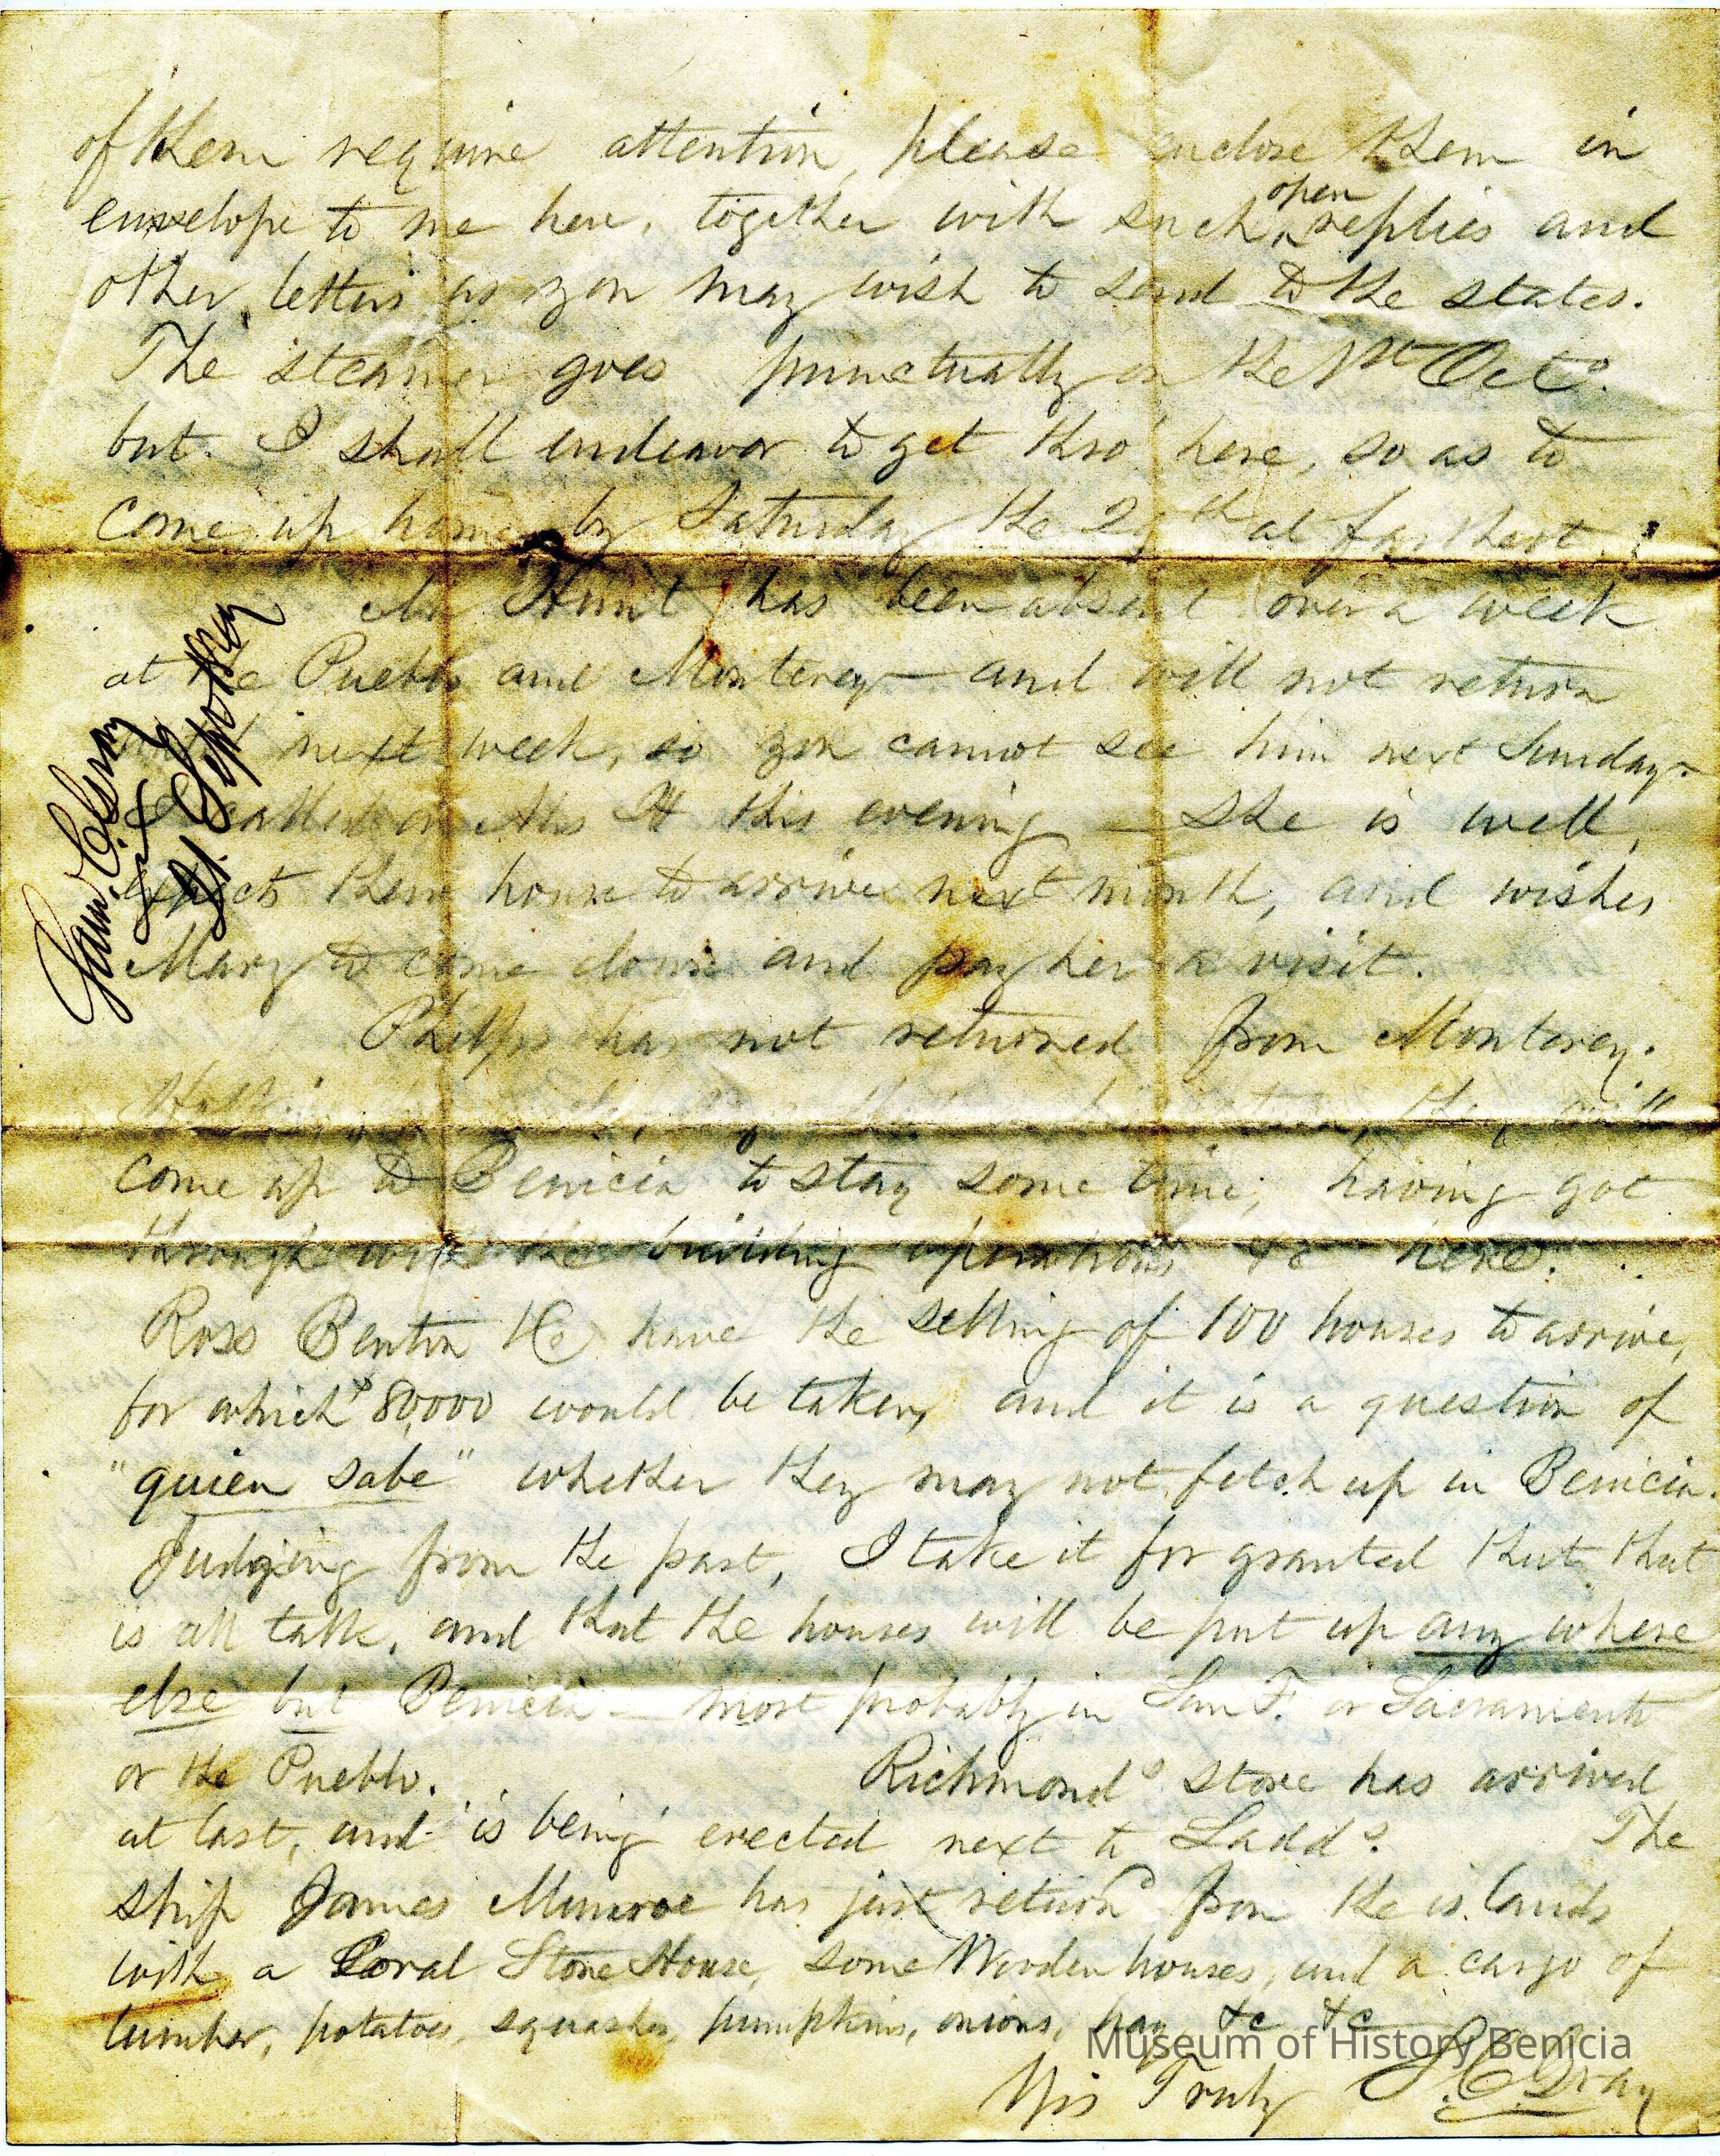 of them require attention, please enclose them in
envelope to me here, together with such open replies and
other letters as you may wish to send to the states.
The steamer goes punctually on the 1st Octo.
but I shall endeavor to get thro' here, so as to
come up home by Saturday the 29th at farthest.
Mr Hunt has been absent over a week
at the Pueblo and Monterey — and will not return
until next week, so you cannot see him next Sunday.
I called on Mrs H this evening — She is well,
expects their house to arrive next month, and wishes
Mary to come down and pay her a visit.
Phelps has not returned from Monterey.
will
come up to Benicia to stay some time, having got
through with the building operations &c here.
Ross Benton & Co have the selling of 100 houses to arrive,
for which $80,000 would be taken, and it is a question of
"quien sabe" whether they may not fetch up in Benicia.
Judging from the past, I take it for granted that that
is all talk, and that the houses will be put up any where
else but Benicia — most probably in San F. or Sacramento
or the Pueblo. Richmonds store has arrived
at last, and is being erected next to Ladds. The
ship James Munroe has just returnd from the islands
with a Coral Stone House, some Wooden houses, and a cargo of
lumber, potatoes, squashes, pumpkins, onions, hay &c &c
Yrs Truly S. C. Gray
Saml C. Gray
21. Sept
Museum of History Benicia